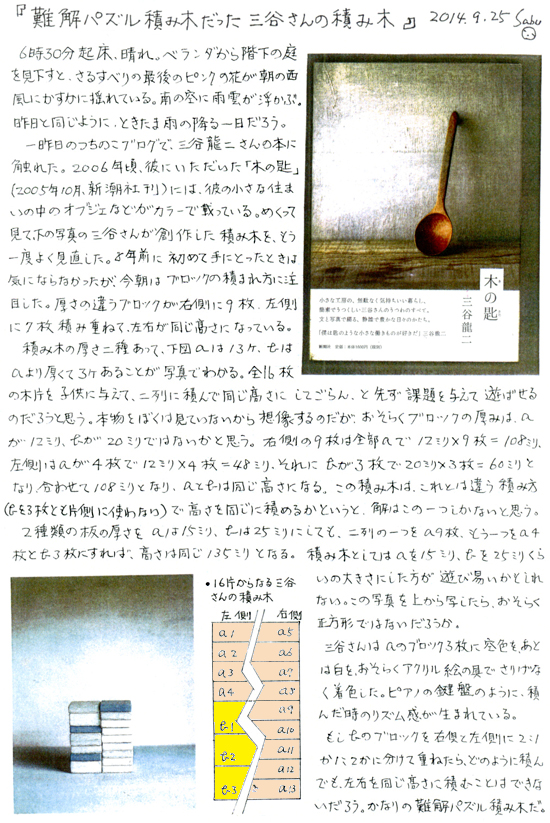 『難解パズル積み木だった 三谷さんの積み木』 2014.9.25 Sabu
6時30分起床、晴れ。ベランダから階下の庭
を見下すと、さるすべりの最後のピンクの花が朝の西
風にかすかに揺れている。南の空に雨雲が浮かぶ。
昨日と同じように、ときたま雨の降る一日だろう。
一昨日のつちのこブログで、三谷龍二さんの本に
触れた。2006年頃、彼にいただいた「木の匙」
(2005年10月、新潮社刊)には、彼の小さな住ま
いの中のオブジェなどがカラーで載っている。めくって
見て下の写真の三谷さんが創作した積み木を、もう
一度よく見直した。8年前に初めて手にとったときは
気にならなかったが、今朝はブロックの積まれ方に注
目した。厚さの違うブロックが右側に9枚、左側
に7枚積み重ねて、左右が同じ高さになっている。
積み木の厚さ二種あって、下図aは13ヶ、bは
aより厚くて3ヶあることが写真でわかる。全16枚
の木片を子供に与えて、二列に積んで同じ高さに してごらん、と先ず課題を与えて遊ばせる
のだろうと思う。本物をぼくは見ていないから想像するのだが、おそらくブロックの厚みは、a
が12ミリ、bが20ミリではないかと思う。右側の9枚は全部aで12ミリ×9枚=108ミリ、
左側はaが4枚で12ミリ×4枚=48ミリ、それにbが3枚で20ミリ×3枚=60ミリと
なり、合わせて108ミリとなり、aとbは同じ高さになる。この積み木は、これとは違う積み方
(bを3枚とも片側に使わない)で高さを同じに積めるかというと、解はこの一つしかないと思う。
2種類の板の厚さをaは15ミリ、bは25ミリにしても、二列の一つをa9枚、もう一つをa4
枚とb3枚にすれば、高さは同じ135ミリとなる。積み木としてはaを15ミリ、bを25ミリくら
いの大きさにした方が遊び易いかもしれ
ない。この写真を上から写したら、おそらく
正方形ではないだろうか。
三谷さんはaのブロック3枚に窓色を、あと
は白を、おそらくアクリル絵の具でさりげな
く着色した。ピアノの鍵盤のように、積
んだ時のリズム感が生まれている。
もしbのブロックを右側と左側に2:1
か1:2かに分けて重ねたら、どのように積ん
でも、左右を同じ高さに積むことはできな
いだろう。かなりの難解パズル積み木だ。
木の匙
三谷龍二
小さな工房の、想動なく気持ちいい暮らし。
文と写真で綴る、静謐で豊かな日々のかたち。
「僕は匙のような小さな働きものが好きだ」三谷龍二
•16片からなる三谷
さんの積み木
左側 右側
a1 a5
a2 a6
a3 a7
a4 a8
b1 a9
a10
b2 a11
a12
b3 a13